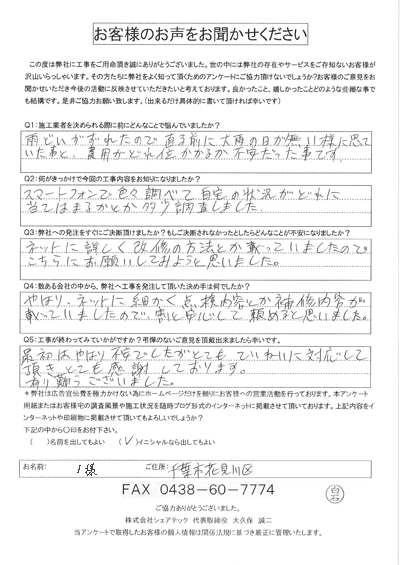 お客様のお声をお聞かせください
この度は弊社に工事をご用命頂き誠にありがとうございました。世の中には弊社の存在やサービスをご存知ないお客様が
沢山いらっしゃいます。その方たちに弊社をよく知って頂くためのアンケートにご協力頂けないでしょうか？お客様のご意見をお
聞かせいただき今後の活動に反映させていただきたいと考えております。良かったこと、嬉しかったことどのような些細な事で
も結構です。是非ご協力お願い致します。（出来るだけ具体的に書いて頂ければ幸いです）
Q1:施工業者を決められる際に前にどんなことで悩んでいましたか？
雨どいがずれたので直る前に大雨の日が無い様に思って
いた事と、費用がどれ位かかるか不安だった事です。
Q2:何がきっかけで今回の工事内容をお知りになりましたか？
スマートフォンで色々調べて自宅の状況がどれに
当てはまるかとか多少調査しました。
Q3:弊社への発注をすぐにご決断頂けましたか？もしご決断されなかったとしたらどんなことが不安になりましたか？
ネットに詳しく改修の方法とか載っていましたので
こちらにお願いしてみようと思いました。
Q4:数ある会社の中から、弊社へ工事を発注して頂いた決め手は何でしたか？
やはり、ネットに細かく点検内容とか補修内容が
載っていましたので、割と安心して頼めると思いました。
Q5:工事が終わってみていかがですか？忌憚のないご意見を頂戴出来ましたら幸いです。
最初はやはり不安でしたがとてもていねいに対応して
頂きとても感謝しております。
有り難うございました。
＊弊社は広告宣伝費を極力かけない為にホームページだけを頼りにお客様への営業活動を行っております。本アンケート
用紙またはお客様宅の調査風景や施工状況を随時ブログ形式のインターネットに掲載させて頂いております。上記内容をイ
ンターネットや印刷物に掲載させて頂いてもよろしいでしょうか？
下記の中から〇印をお付下さい。
（　）名前を出してもよい　（✓）イニシャルなら出してもよい
お名前:　I 様　ご住所:　千葉市花見川区
FAX 0438-60-7774
ご協力ありがとうございました。
株式会社シェアテック 代表取締役 大久保 誠二
当アンケートで取得したお客様の個人情報は関係法規に基づき厳正に管理いたします。